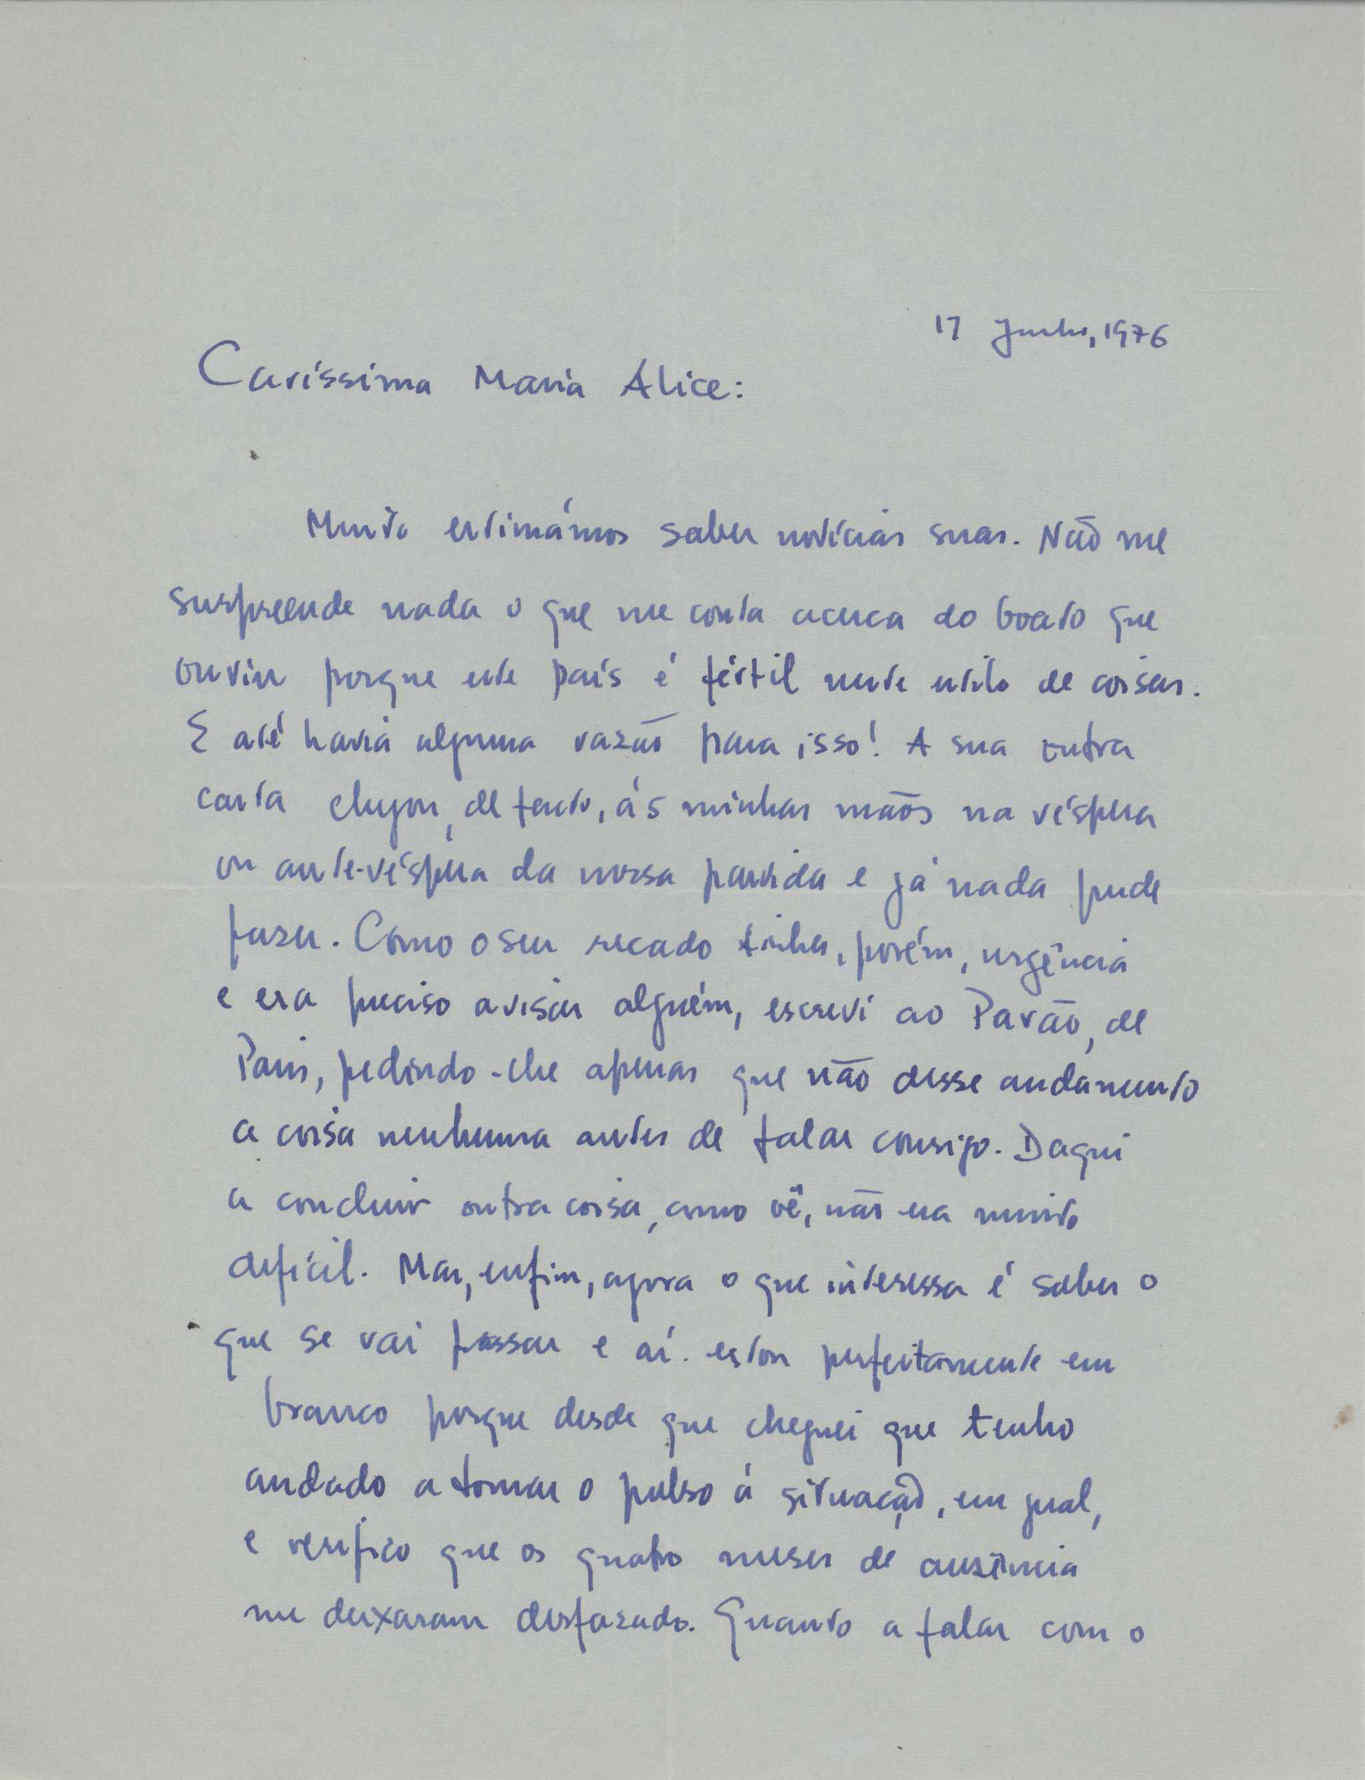 17 Junho, 1976
Caríssima Maria Alice:
Muito estimámos saber notícias suas. Não me
surpreende nada o que me conta acerca do boato que
ouviu porque este país é fértil neste estilo de coisas.
E até havia alguma razão para isso! A sua outra
carta chegou, de facto, ás minhas mãos na véspera
ou ante-véspera da nossa partida e já nada pude
fazer. Como o seu recado tinha, porém, urgência
e era preciso avisar alguém, escrevi ao Pavão, de
Paris, pedindo-lhe apenas que não desse andamento
a coisa nenhuma antes de falar consigo. Daqui
a concluir outra coisa, como vê, não era muito
difícil. Mas, enfim, agora o que interessa é saber o
que se vai passar e aí estou perfeitamente em
branco porque desde que cheguei que tenho
andado a tomar o pulso á situação, em geral,
e verifico que os quatro meses de ausência
me deixaram desfazado. Quanto a falar com o